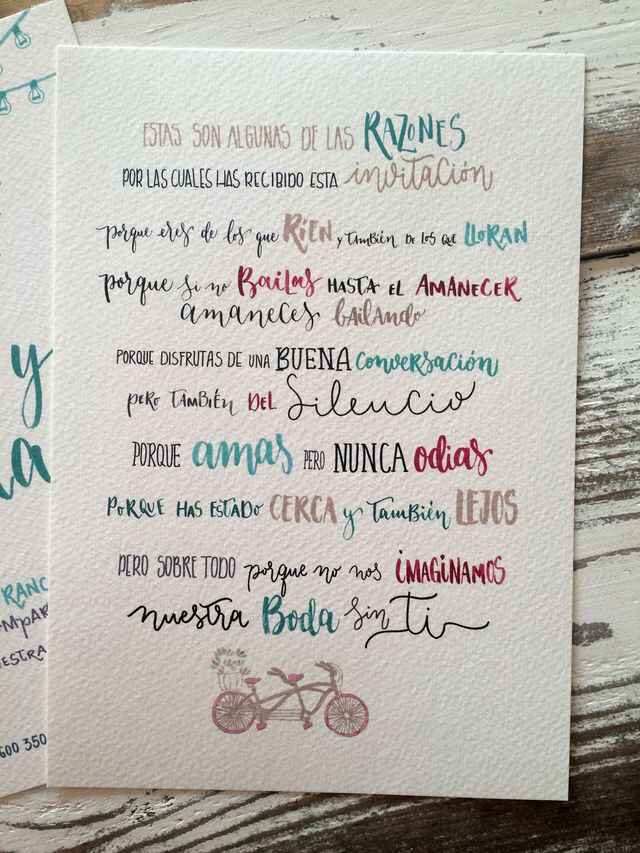 ESTAS SON ALGUNAS DE LAS RAZONES
POR LAS CUALES HAS RECIBIDO ESTA invitación
porque eres de los que Ríen y también de los que lloran
porque si no Bailas hasta el amanecer
amaneces bailando
porque disfrutas de una BUENA conversación
pero también del Silencio
PORQUE amas pero NUNCA odias
Porque has estado CERCA y también LEJOS
PERO SOBRE TODO porque no nos imaginamos
nuestra Boda sin Ti
y
a
RANC
MPAR
ESTRA
600 350